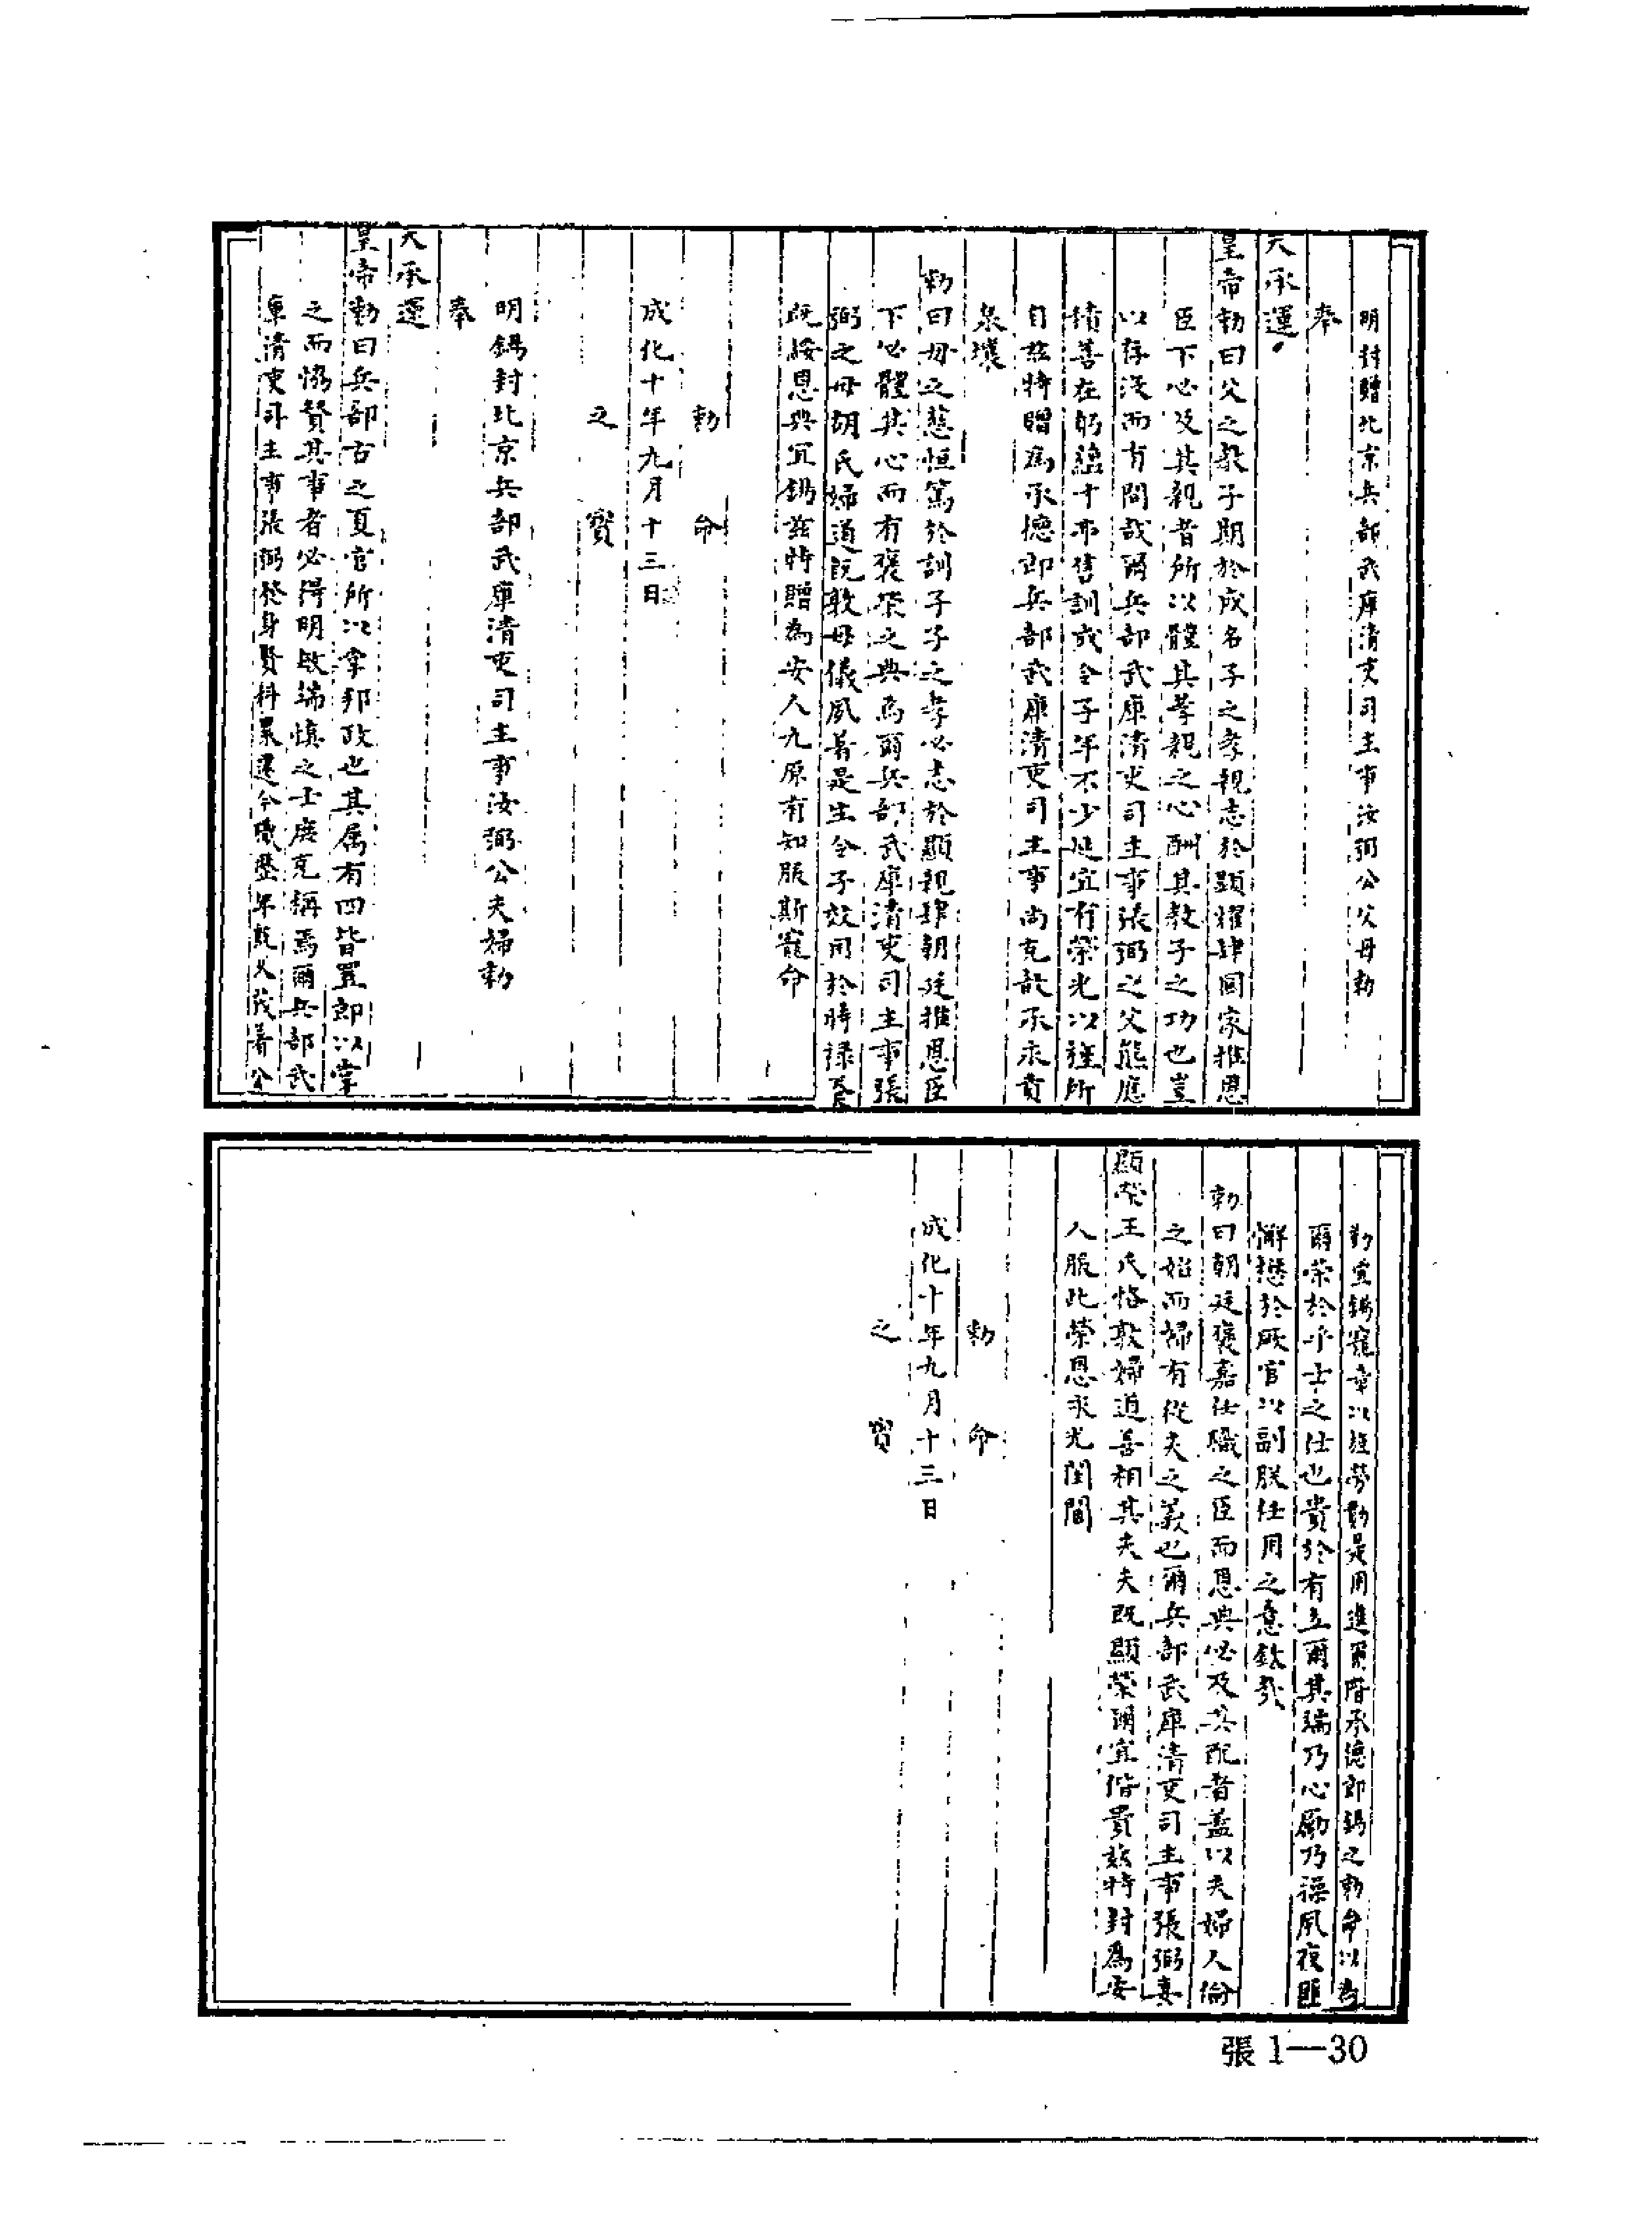 明封贈北京兵部武庫清吏司主事汝弼公父母勅
奉
天承運
皇帝勅曰父之教子期於成名子之孝親志於顯揚肆國家推恩
臣下必及其親者所以體其孝親之心酬其教子之功也豈
以存沒而有間哉爾兵部武庫清吏司主事張弼之父熊應
積善在躬才弗售訓成令子年不少延宜有榮光以旌所
自茲特贈為承德郎兵部武庫清吏司主事尚克歆承永賁
泉壤
勅曰母之慈恒篤於訓子子之孝必志於顯親肆朝廷推恩臣
下必體其心而有褒榮之典焉爾兵部武庫清吏司主事張
弼之母胡氏婦道既敦母儀夙著是生令子效用於時祿養
既綏恩典宜錫茲特贈為安人九原有知服斯寵命
勅命
成化十年九月十三日
之寶
明錫封北京兵部武庫清吏司主事汝弼公夫婦勅
奉
天承運
皇帝勅曰兵部古之夏官所以掌邦政也其屬有四皆置郎以掌
之而協贊其事者必得明敏端慎之士庶克稱焉爾兵部武
庫清吏司主事張弼發身賢科累遷今職歷年既久茂著公
勤宜錫寵章以旌勞勩是用進爾階承德郎錫之勅命以為
爾榮於乎士之仕也貴於有立爾其端乃心勵乃操夙夜匪
懈懋於厥官以副朕任用之意欽哉
勅曰朝廷褒嘉仕職之臣而恩典必及其配者蓋以夫婦人倫
之始而婦有從夫之義也爾兵部武庫清吏司主事張弼妻
王氏恪敦婦道善相其夫夫既顯榮爾宜偕貴茲特封為安
人服此榮恩永光閨閫
勅命
成化十年九月十三日
之寶
張1—30